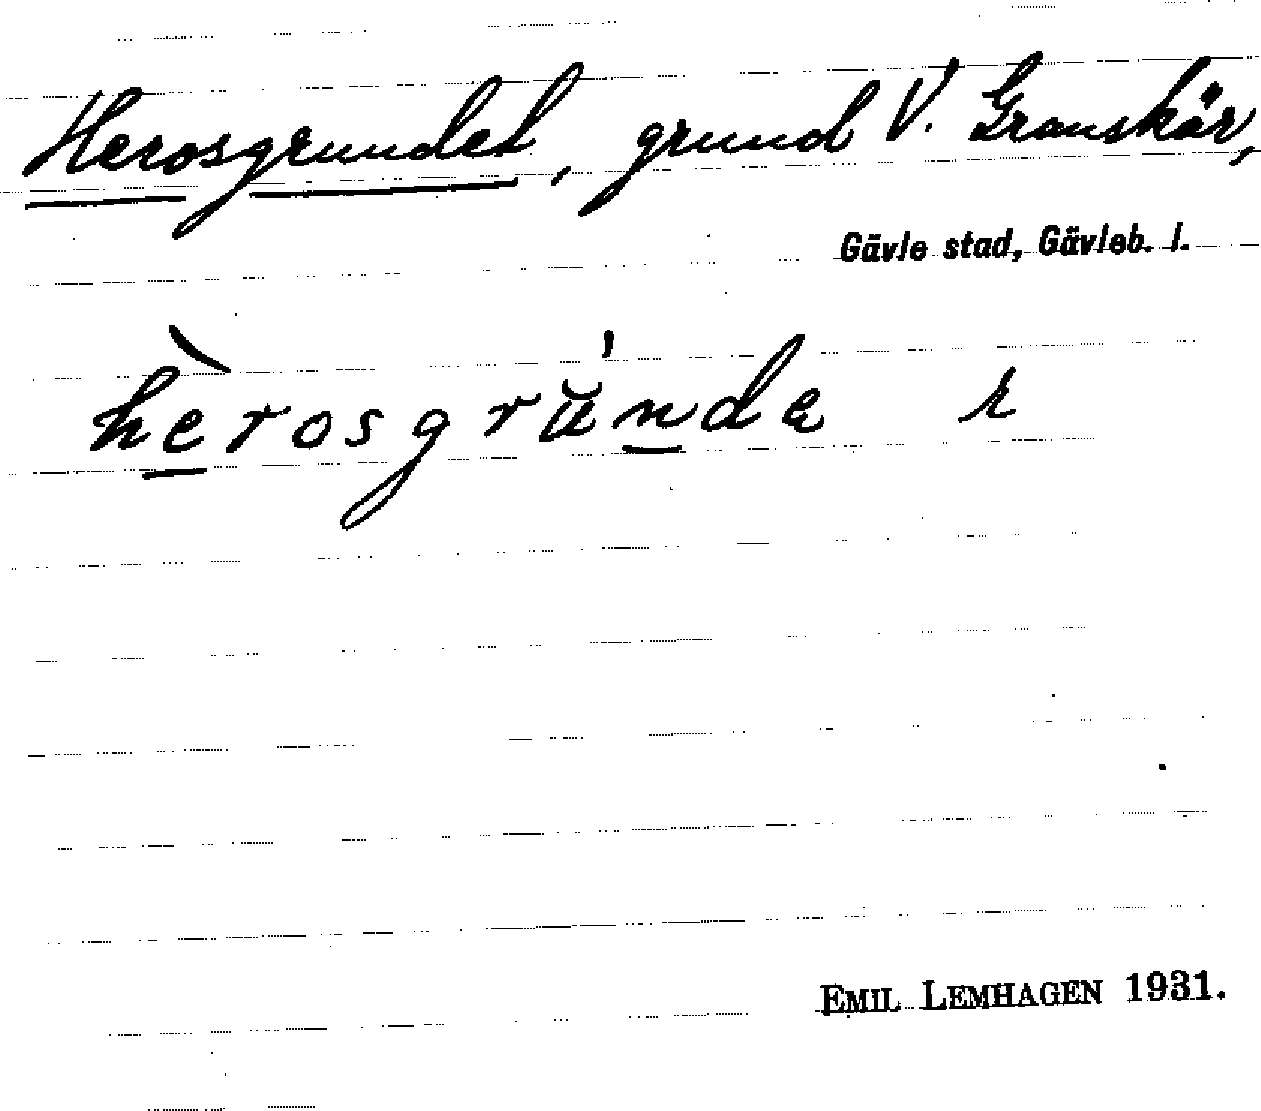 Herosgrundet, grund V. Granskär,
Gävle stad, Gävleb. l.
hèrosgrŭ́nde r
EMIL LEMHAGEN 1931.